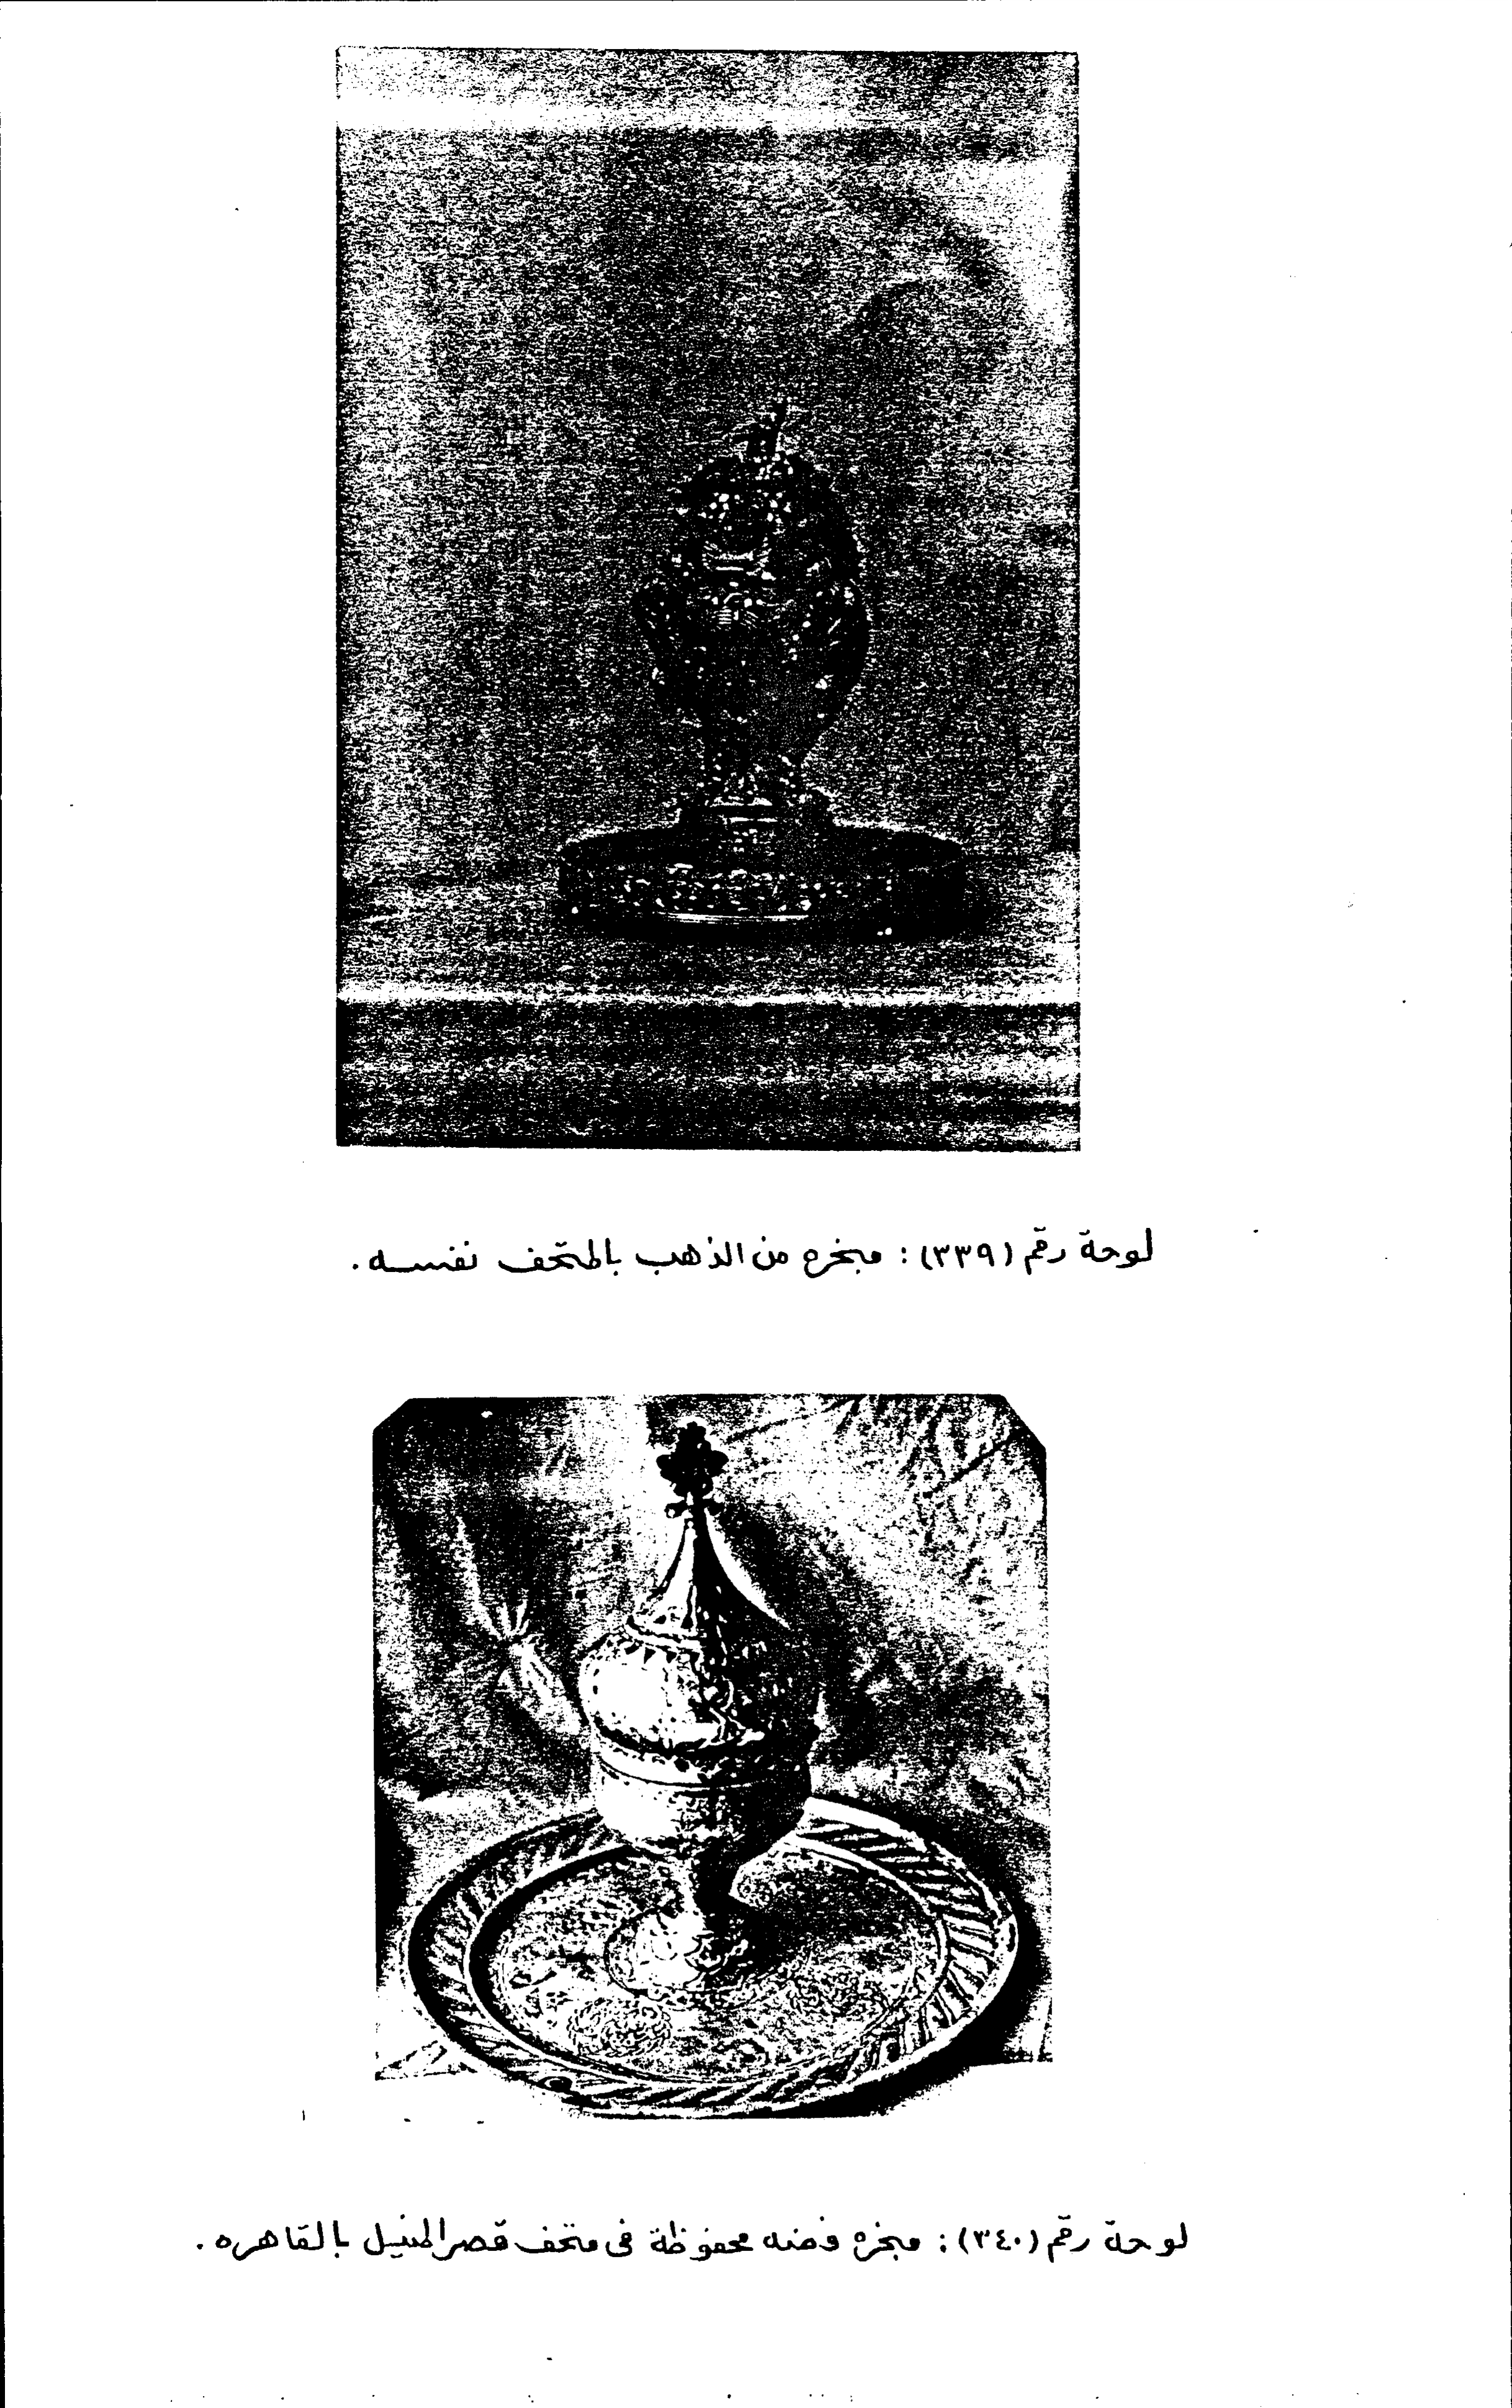 لوحة رقم (٣٣٩) : مبخره من الذهب بالمتحف نفسه .
لوحة رقم (٣٤٠) : مبخره فضه محفوظة فى متحف قصر المنيل بالقاهره .